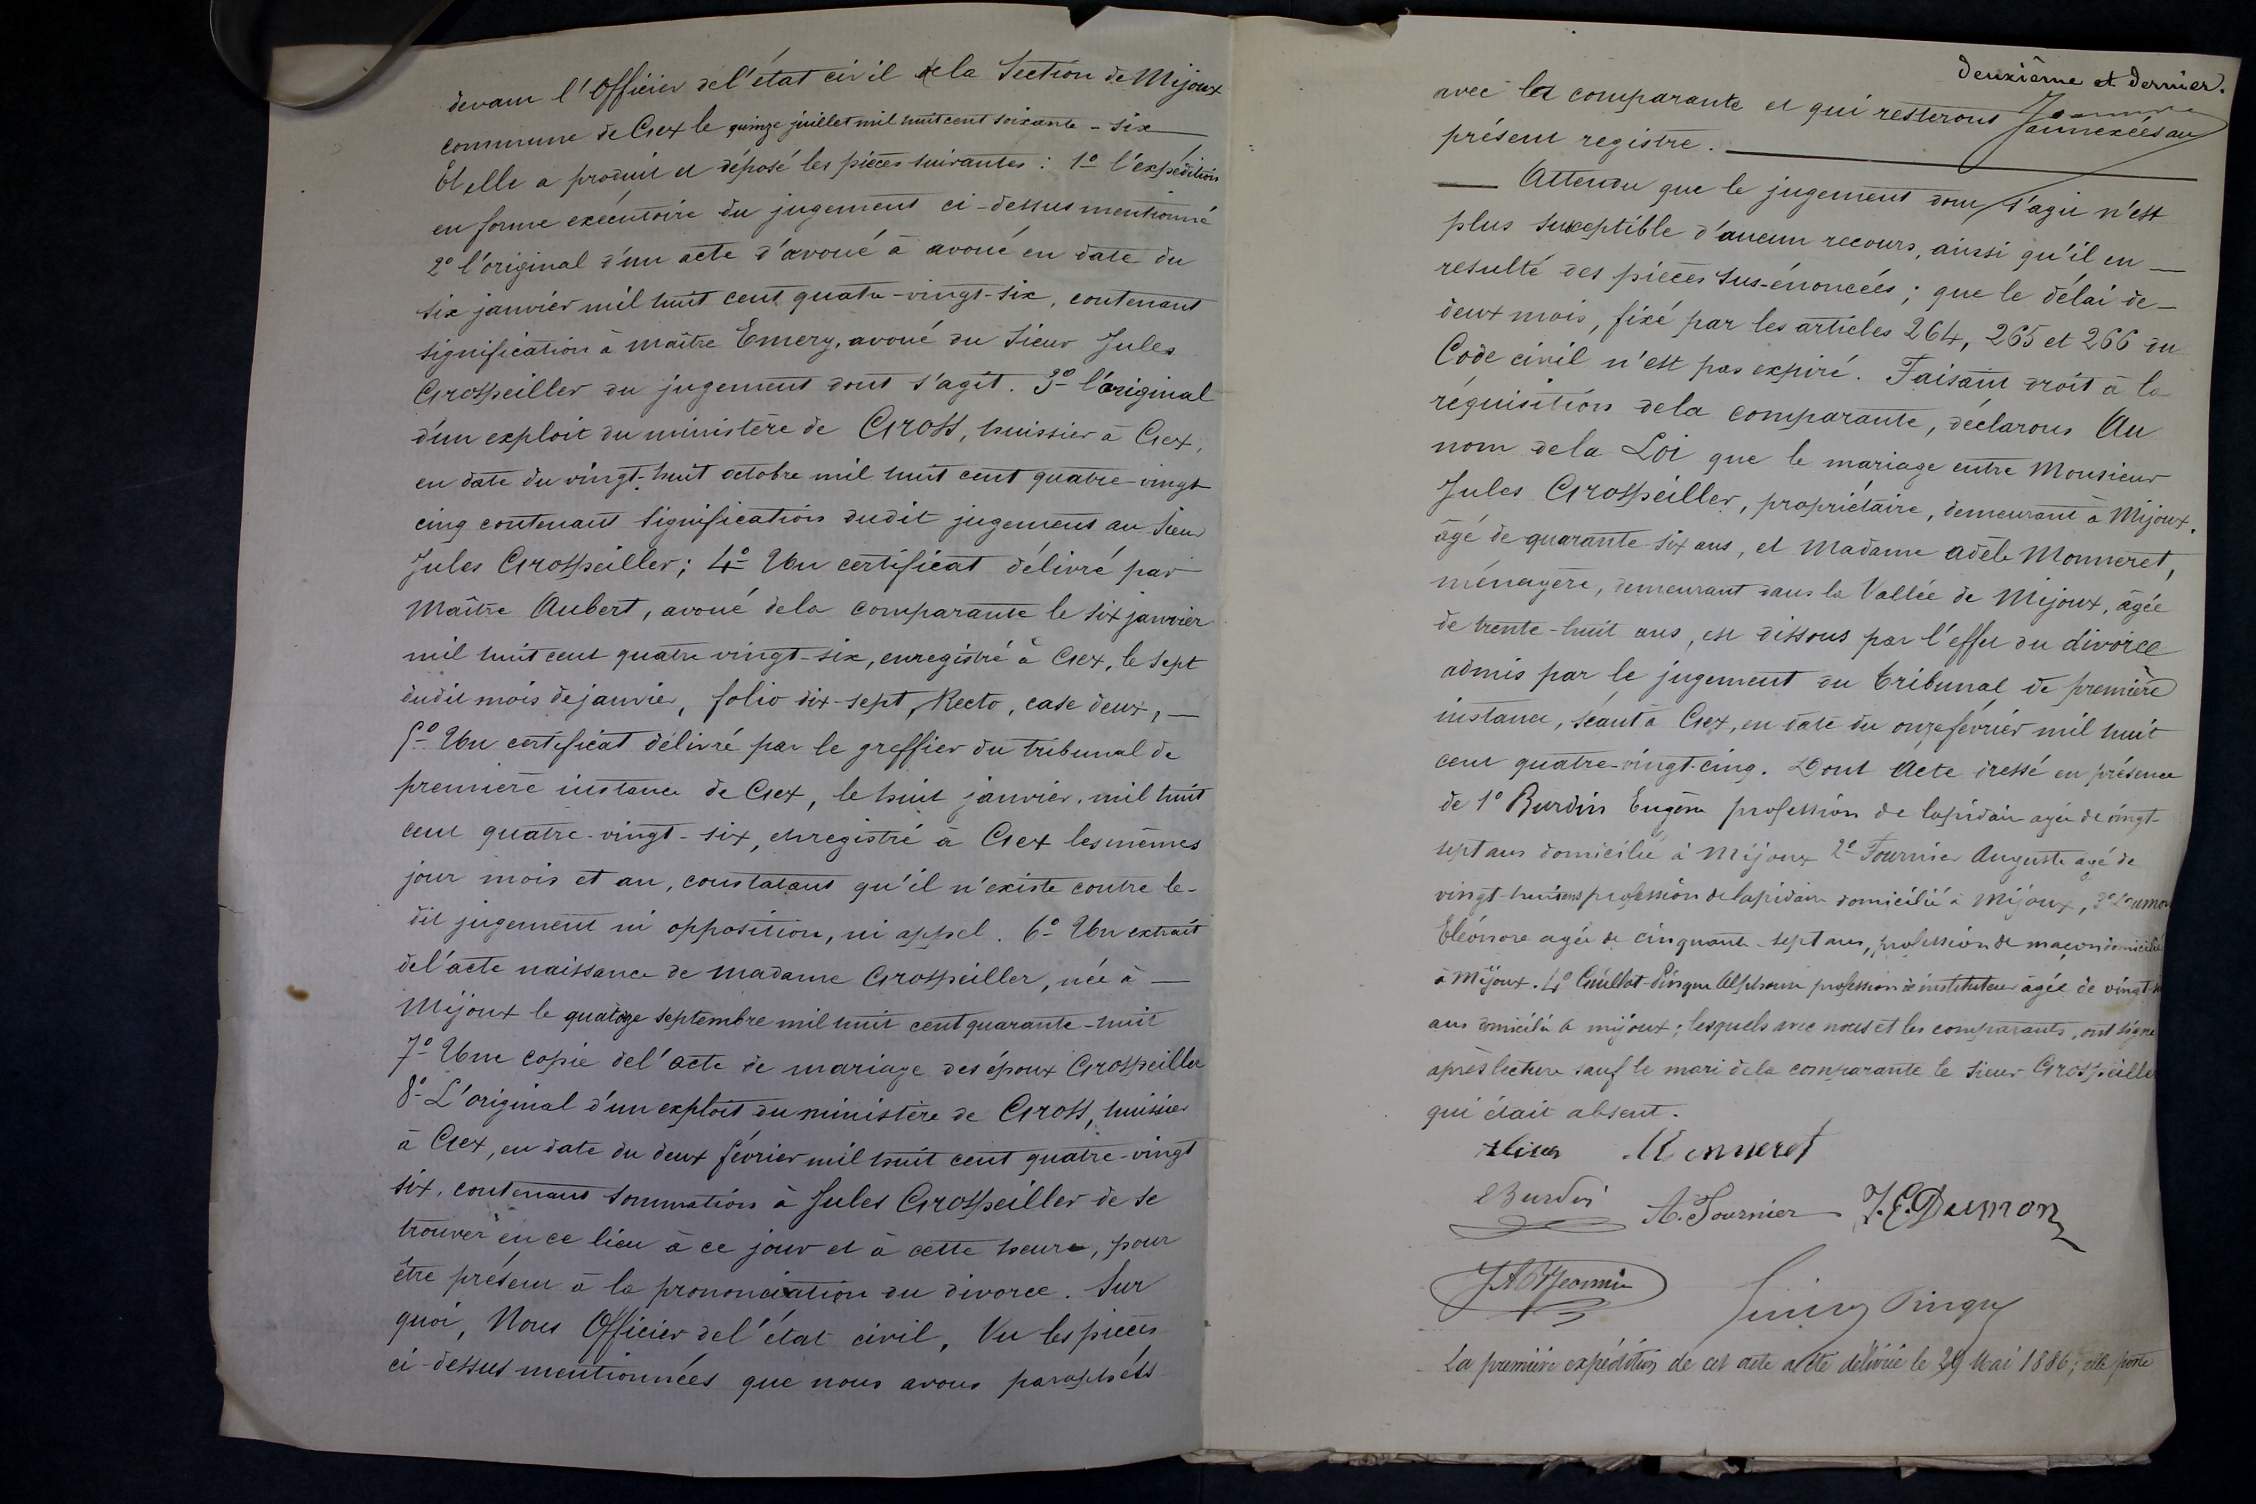 devant l'Officier de l'état civil de la Section de Mijoux
commune de Gex le quinze juillet mil huit cent soixante-six
Et elle a produit et déposé les pièces suivantes : 1º l'expédition
en forme exécutoire du jugement ci-dessus mentionné
2º l'original d'un acte d'avoué à avoué en date du
six janvier mil huit cent quatre-vingt-six, contenant
signification à maître Emery, avoué du Sieur Jules
Grospeiller du jugement dont s'agit. 3º l'original
d'un exploit du ministère de Gross, huissier à Gex,
en date du vingt-huit octobre mil huit cent quatre-vingt
cinq contenant signification dudit jugement au Sieur
Jules Grospeiller; 4º Un certificat délivré par
Maître Aubert, avoué de la comparante le six janvier
mil huit cent quatre vingt-six, enregistré à Gex, le sept
dudit mois de janvier, folio dix-sept, Recto, case deux, —
5º Un certificat délivré par le greffier du tribunal de
première instance de Gex, le huit janvier, mil huit
cent quatre-vingt-six, enregistré à Gex les mêmes
jour mois et an, constatant qu'il n'existe contre le-
dit jugement ni opposition, ni appel. 6º Un extrait
de l'acte naissance de madame Grospeiller, née à —
Mijoux le quatorze septembre mil huit cent quarante-huit
7º Une copie de l'acte de mariage des époux Grospeiller
8º L'original d'un exploit du ministère de Gross, huissier
à Gex, en date du deux février mil huit cent quatre-vingt
six, contenant sommation à Jules Grospeiller de se
trouver en ce lieu à ce jour et à cette heure, pour
être présent à la prononciation du divorce. Sur
quoi, Nous Officier de l'état civil, Vu les pièces
ci-dessus mentionnées que nous avons paraphées
deuxième et dernier.
avec la comparante et qui resterons annexées au
présent registre.
— Attendu que le jugement dont s'agit n'est
plus susceptible d'aucun recours, ainsi qu'il en —
resulté des pièces sus-énoncées; que le délai de —
deux mois, fixé par les articles 264, 265 et 266 du
Code civil n'est pas expiré. Faisant droit à la
réquisition de la comparante, déclarons Au
nom de la Loi que le mariage entre Monsieur
Jules Grospeiller, propriétaire, demeurant à Mijoux,
âgé de quarante-six ans, et Madame Adèle Monneret,
ménagère, demeurant dans la Vallée de Mijoux, âgée
de trente-huit ans, est dissous par l'effet du divorce
admis par le jugement du Tribunal de première
instance, séant à Gex, en date du onze février mil huit
cent quatre-vingt-cinq. Dont Acte dressé en présence
de 1º Burdin Eugène profession de lapidaire agée de vingt-
sept ans domicilié à Mijoux 2º Fournier Auguste agé de
vingt-huit ans profession de lapidaire domicilié à Mijoux, 3º Dumon
Eléonore agée de cinquante-sept ans, profession de maçon domicilié
à Mijoux. 4º Guillot-Pingue Alphonse profession de instituteur âgée de vingt
ans domicilié à mijoux; lesquels avec nous et les comparants, ont signé
après lecture sauf le mari de la comparante le Sieur Grospeiller
qui était absent.
Monneret
E Burdin A. Fournier J.E. Dumon
Pingue
La première expédition de cet acte a été délivrée le 29 Mai 1886; elle porte